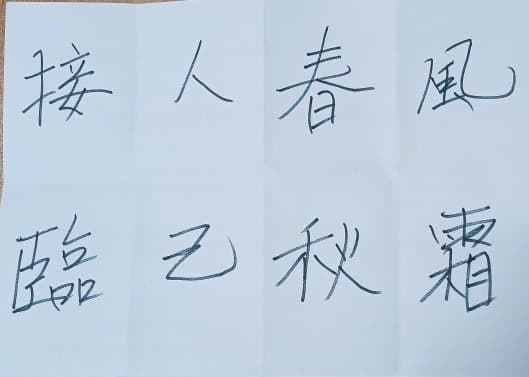 接人春風
臨己秋霜